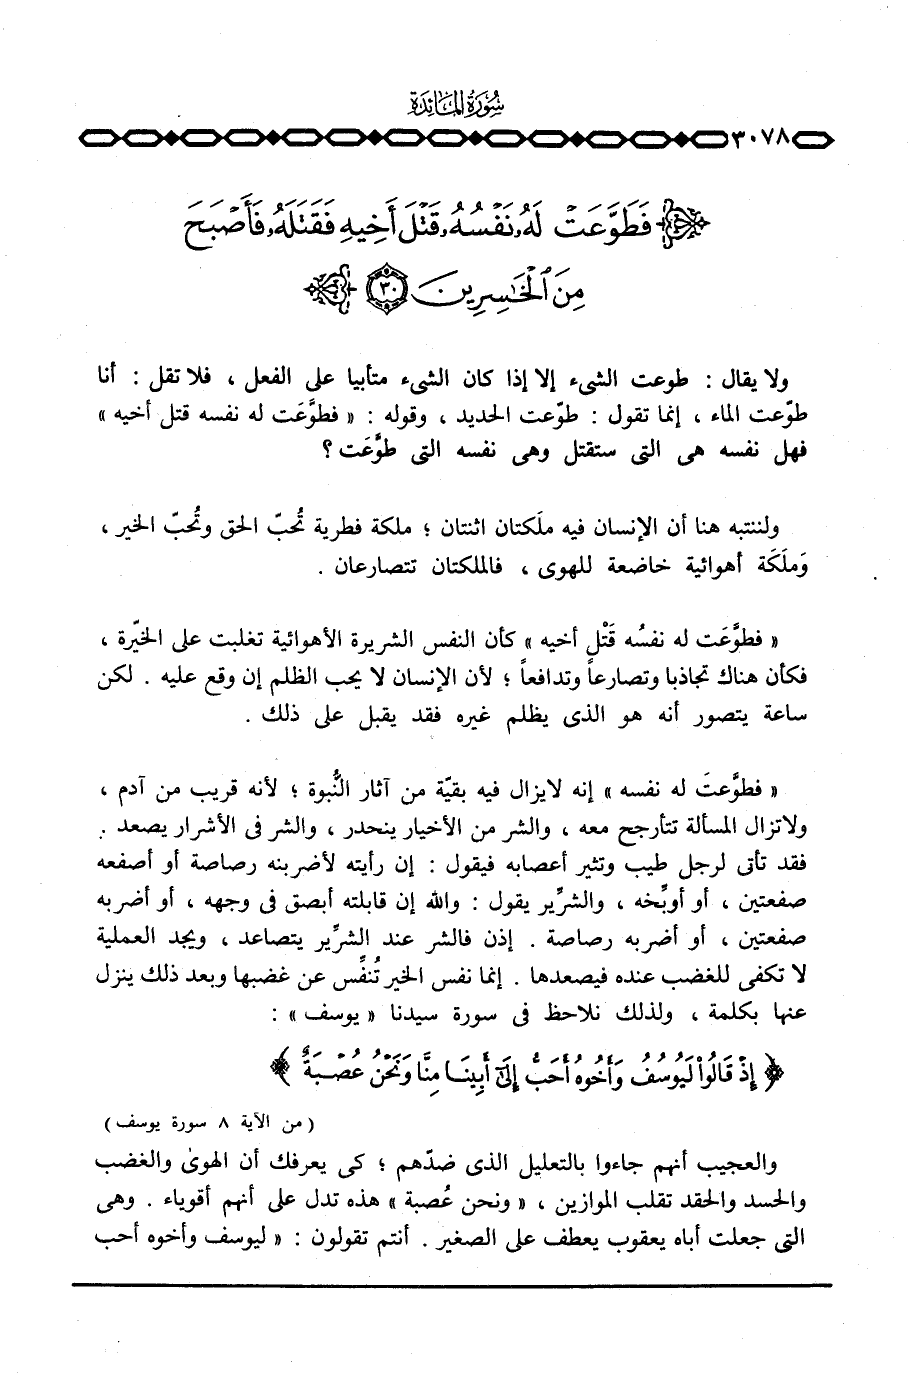 سُورَةُ المَائِدَةِ
٣٠٧٨
فَطَوَّعَتْ لَهُۥ نَفْسُهُۥ قَتْلَ أَخِيهِ فَقَتَلَهُۥ فَأَصْبَحَ
مِنَ ٱلْخَٰسِرِينَ ٣٠
ولا يقال : طوعت الشىء إلا إذا كان الشىء متأبيا على الفعل ، فلا تقل : أنا
طوّعت الماء ، إنما تقول : طوّعت الحديد ، وقوله : « فطوَّعَت له نفسه قتل أخيه »
فهل نفسه هى التى ستقتل وهى نفسه التى طوَّعَت ؟
ولننتبه هنا أن الإنسان فيه ملَكتان اثنتان ؛ ملكة فطرية تُحبّ الحق وتُحبّ الخير ،
وَملَكَة أهوائية خاضعة للهوى ، فالملكتان تتصارعان .
« فطوَّعَت له نفسُه قَتْل أخيه » كأن النفس الشريرة الأهوائية تغلبت على الخيّرة ،
فكأن هناك تجاذبا وتصارعاً وتدافعاً ؛ لأن الإنسان لا يحب الظلم إن وقع عليه . لكن
ساعة يتصور أنه هو الذى يظلم غيره فقد يقبل على ذلك .
« فطوَّعتَ له نفسه » إنه لايزال فيه بقيّة من آثار النُّبوة ؛ لأنه قريب من آدم ،
ولاتزال المسألة تتأرجح معه ، والشر من الأخيار ينحدر ، والشر فى الأشرار يصعد .
فقد تأتى لرجل طيب وتثير أعصابه فيقول : إن رأيته لأضربنه رصاصة أو أصفعه
صفعتين ، أو أوبِّخه ، والشرِّير يقول : والله إن قابلته أبصق فى وجهه ، أو أضربه
صفعتين ، أو أضربه رصاصة . إذن فالشر عند الشرِّير يتصاعد ، ويجد العملية
لا تكفى للغضب عنده فيصعدها . إنما نفس الخير تُنفِّس عن غضبها وبعد ذلك ينزل
عنها بكلمة ، ولذلك نلاحظ فى سورة سيدنا « يوسف » :
﴿ إِذْ قَالُوا۟ لَيُوسُفُ وَأَخُوهُ أَحَبُّ إِلَىٰٓ أَبِينَا مِنَّا وَنَحْنُ عُصْبَةٌ ﴾
( من الآية ٨ سورة يوسف )
والعجيب أنهم جاءوا بالتعليل الذى ضدّهم ؛ كى يعرفك أن الهوىٰ والغضب
والحسد والحقد تقلب الموازين ، « ونحن عُصبة » هذه تدل على أنهم أقوياء . وهى
التى جعلت أباه يعقوب يعطف على الصغير . أنتم تقولون : « ليوسف وأخوه أحب